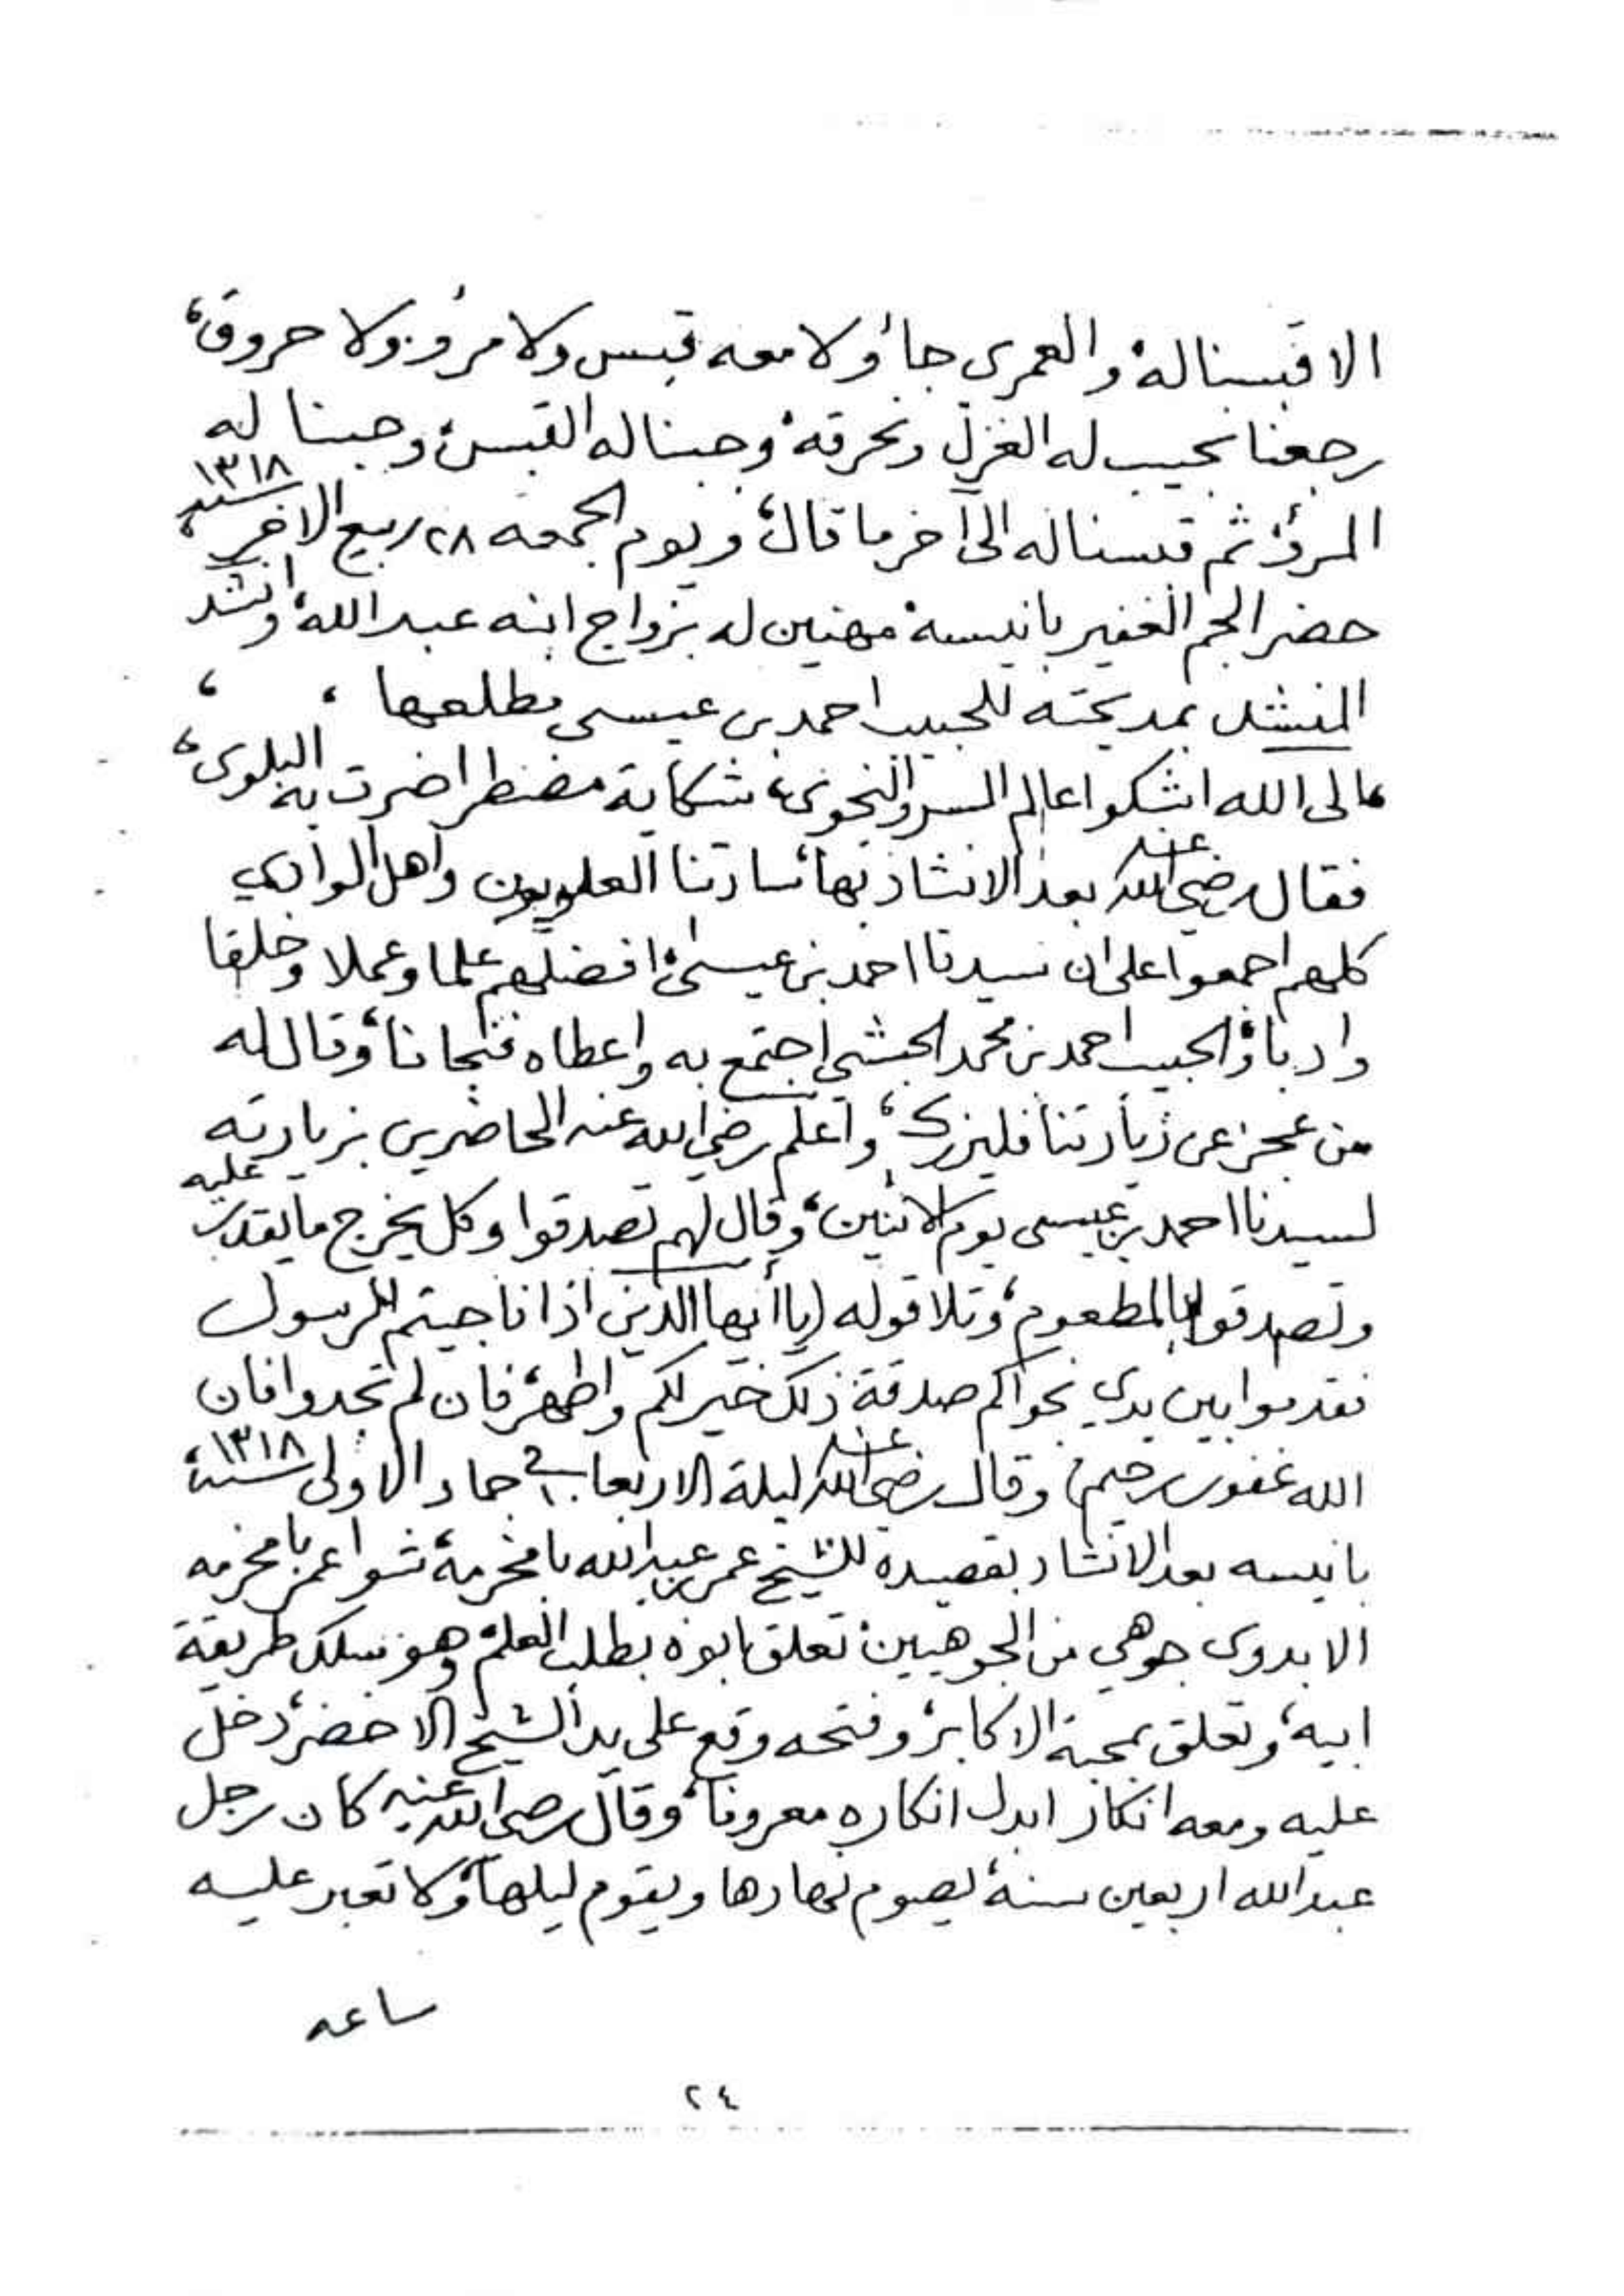 الا قبسناله، والعمري جا، ولا معه قبس ولا مرو، ولا حروق،
رجعنا نجيب له الغزل ونحرقه، وجبنا له القبس، وجبنا له
المرو، ثم قبسناله الى آخر ما قال، ويوم الجمعه ٢٨ ربيع الاخر سنة ١٣١٨
حضر الجم الغفير بانيسة، مهنين له بزواج ابنه عبدالله، وانشد
المنشد بمديحته للحبيب احمد بن عيسى مطلعها ، ،
، الى الله اشكوا عالم السر والنجوى، شكاية مضطر اضرت به البلوى،
فقال رضي الله عنه بعد الانشاد بها، سادتنا العلويون واهل الوادي
كلهم اجمعوا على ان سيدنا احمد بن عيسى، افضلهم علما وعملا وخلقا
وادبا، والحبيب احمد بن محمد الحبشي اجتمع به واعطاه فنجانا، وقال له
من عجز عن زيارتنا فليزرك، واعلم رضي الله عنه الحاضرين بزيارته
لسيدنا احمد بن عيسى يوم الاثنين، وقال لهم تصدقوا وكل يخرج ما يقدر عليه
وتصدقوا بالمطعوم، وتلا قوله (يا أيها الذين اذا ناجيتم الرسول
فقدموا بين يدي نجواكم صدقة، ذلك خير لكم واطهر، فان لم تجدوا فان
الله غفور رحيم) وقال رضي الله عنه ليلة الاربعا جماد الاولى سنة ١٣١٨،
بانيسه بعد الانشاد بقصيدة للشيخ عمر بن عبدالله بامخرمة، شوا عمر بامخرمه
الا بدوى جوهي من الجوهيين، تعلق ابوه بطلب العلم، وهو سلك طريقة
ابيه، وتعلق بمحبة الاكابر، وفتحه وقع على يد الشيخ الاخضر، دخل
عليه ومعه انكار ابدل انكاره معروفا، وقال رضي الله عنه كان رجل
عبد الله اربعين سنة، يصوم نهارها ويقوم ليلها، ولا تعبر عليه
ساعه
٢٤